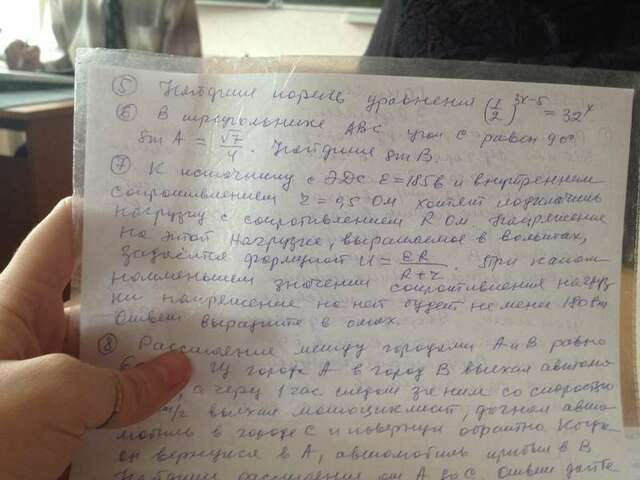 ⑤ Найдите корень уравнения (1/2)^(3x-5) = 32^x
⑥ В треугольнике ABC угол C равен 90°
sin A = √7/4. Найдите sin B.
⑦ К источнику с ЭДС ε = 185 в и внутренним
сопротивлением r = 0,5 Ом хотят подключить
нагрузку с сопротивлением R Ом. Напряжение
на этой нагрузке, выражаемое в вольтах,
задаётся формулой U = εR/R+r. При каком
наименьшем значении сопротивления нагруз
ки напряжение на ней будет не менее 180 В?
Ответ выразите в омах.
⑧ Расстояние между городами A и B равно
Из города A в город B выехал автомо
а через 1 час следом за ним со скоростью
выехал мотоциклист, догнал авто
мобиль в городе C и повернул обратно. Когда
он вернулся в A, автомобиль прибыл в B
Найдите расстояние от A до C. Ответ дайте